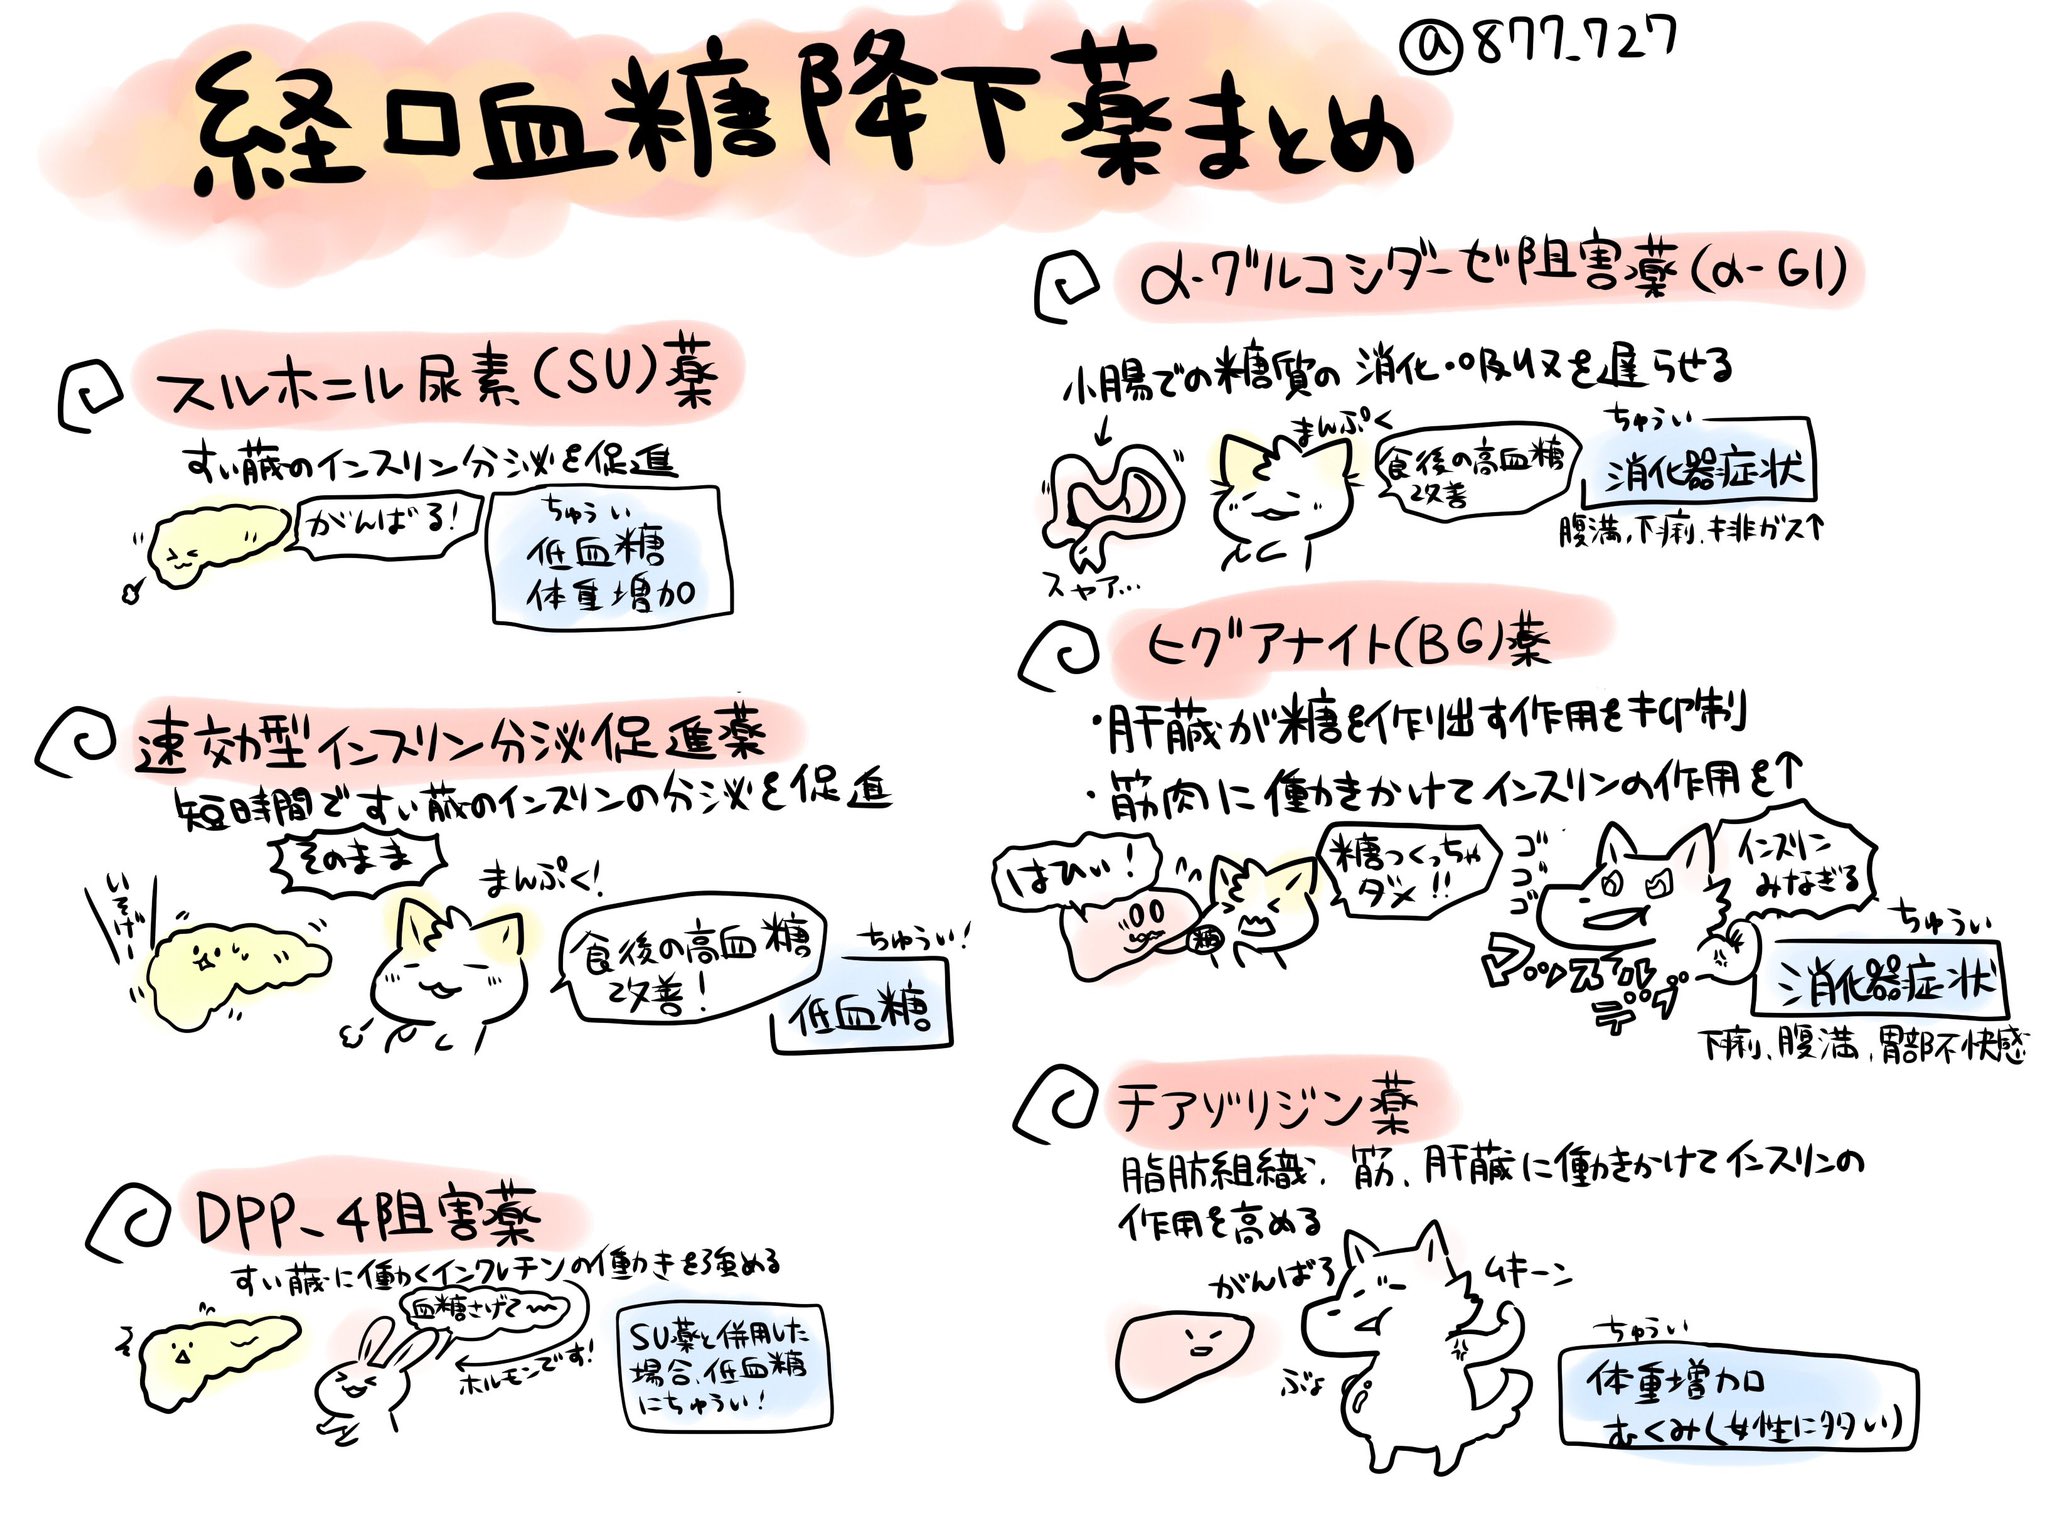 経口血糖降下薬まとめ
@877_727
スルホニル尿素(SU)薬
すい蔵のインスリン分泌を促進
がんばる!
ちゅうい
低血糖
体重増加
速効型インスリン分泌促進薬
短時間ですい蔵のインスリンの分泌を促進
いそげー!
そのまま
まんぷく!
食後の高血糖
改善!
ちゅうい!
低血糖
DPP-4阻害薬
すい蔵に働くインクレチンの働きを強める
血糖さげて〜
ホルモンです!
SU薬と併用した
場合、低血糖
にちゅうい!
α-グルコシダーゼ阻害薬(α-GI)
小腸での糖質の消化・吸収を遅らせる
スヤア…
まんぷく
食後の高血糖
改善
ちゅうい
消化器症状
腹満、下痢、排ガス↑
ヒグアナイト(BG)薬
・肝臓が糖を作り出す作用を抑制
・筋肉に働きかけてインスリンの作用を↑
はひぃ!
糖
糖つくっちゃ
ダメ!!
ゴゴゴ
インスリン
みなぎる
マッスル
デグ
ちゅうい
消化器症状
下痢、腹満、胃部不快感
チアゾリジン薬
脂肪組織、筋、肝臓に働きかけてインスリンの
作用を高める
がんばろ
ムキーン
ぷよ
ちゅうい
体重増加
むくみ(女性に多い)